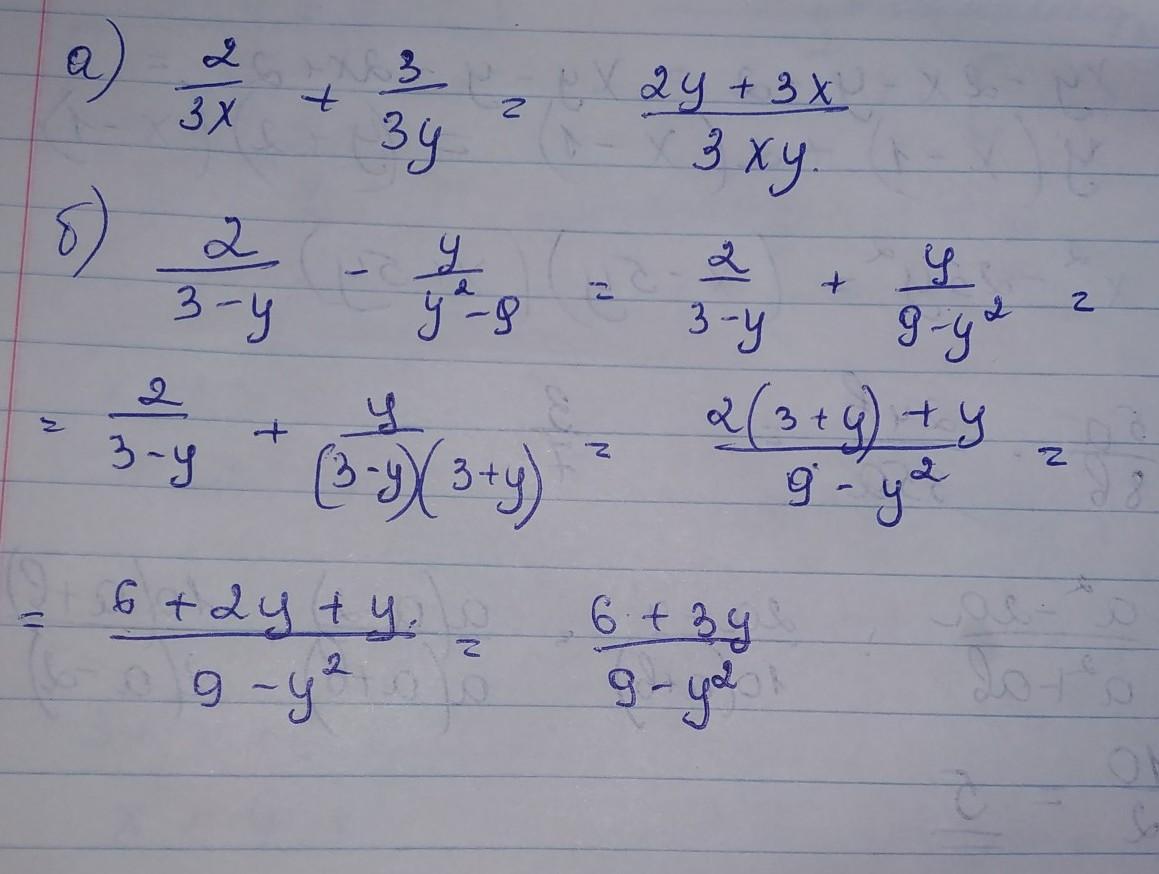 а) 2/3x + 3/3y = (2y + 3x)/3xy.
б) 2/(3-y) - y/(y²-9) = 2/(3-y) + y/(9-y²) =
= 2/(3-y) + y/((3-y)(3+y)) = (2(3+y)+y)/(9-y²) =
= (6+2y+y)/(9-y²) = (6+3y)/(9-y²)